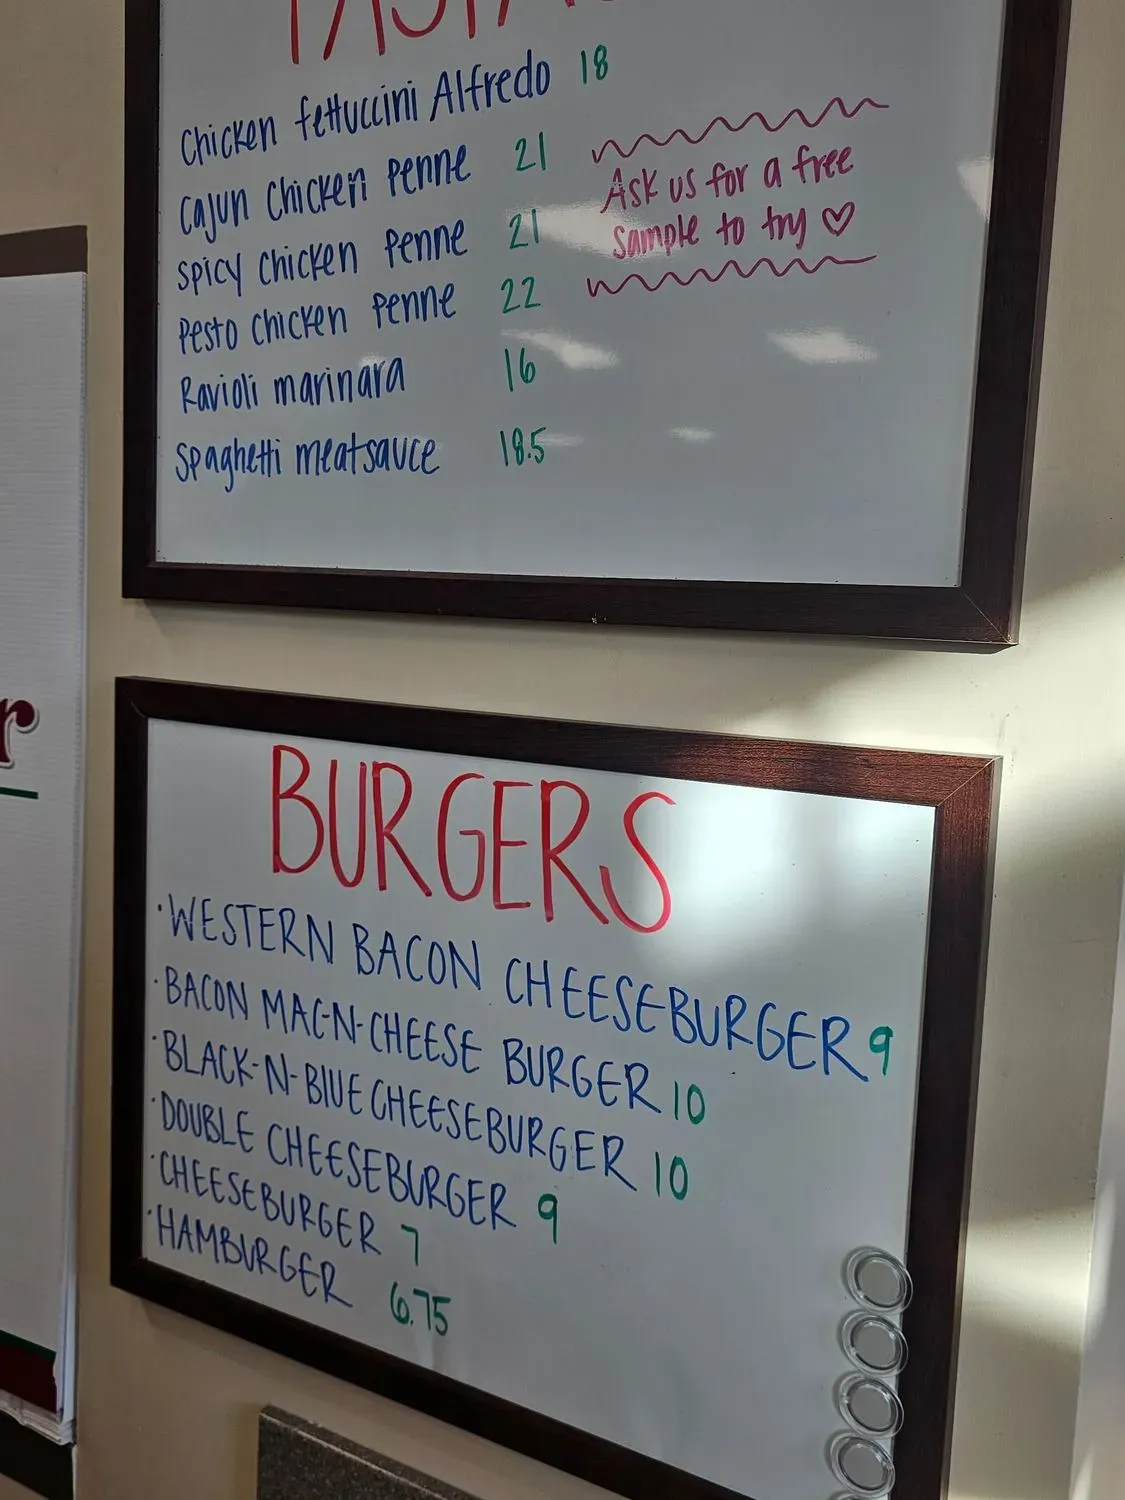 PASTAS
Chicken fettuccini Alfredo 18
Cajun Chicken Penne 21
Spicy Chicken Penne 21
Pesto Chicken Penne 22
Ravioli marinara 16
Spaghetti meatsauce 18.5
Ask us for a free
Sample to try ♡
BURGERS
·WESTERN BACON CHEESEBURGER 9
·BACON MAC-N-CHEESE BURGER 10
·BLACK-N-BLUE CHEESEBURGER 10
·DOUBLE CHEESEBURGER 9
·CHEESEBURGER 7
·HAMBURGER 6.75
r